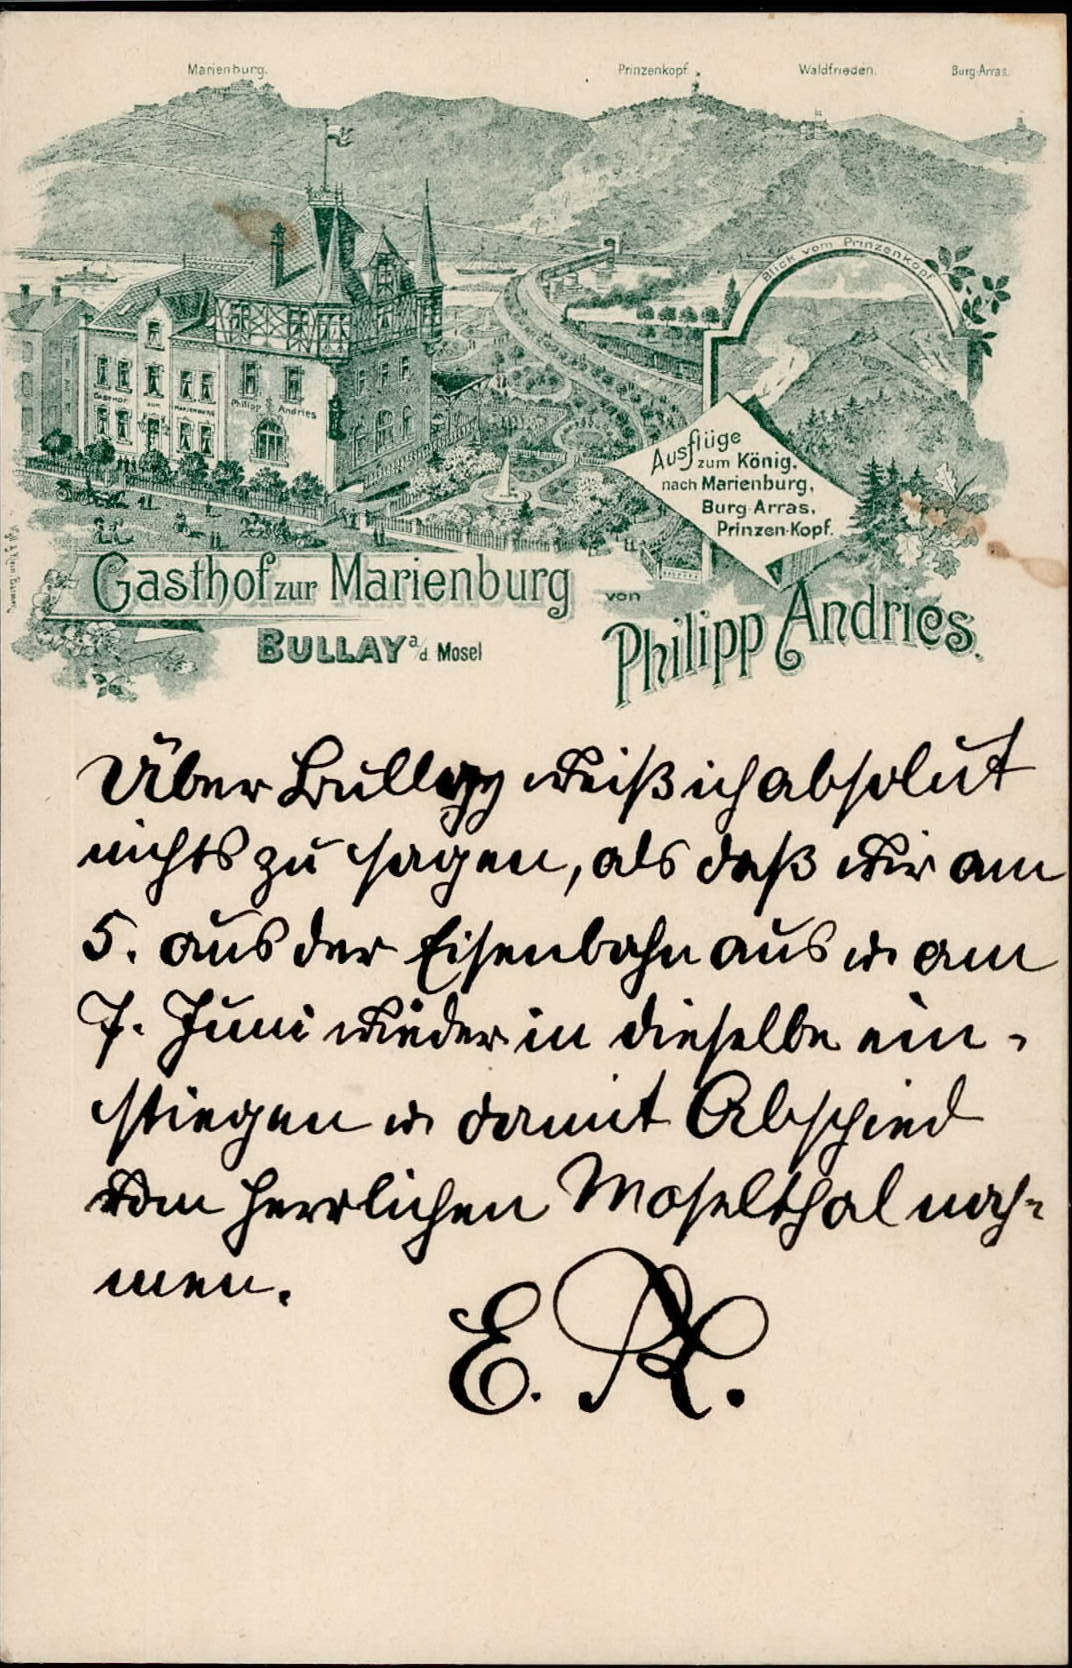 Marienburg. Prinzenkopf. Waldfrieden. Burg-Arras.
Blick vom Prinzenkopf
GASTHOF ZUR MARIENBURG
Philipp Andries
Ausflüge
zum König,
nach Marienburg,
Burg-Arras,
Prinzen-Kopf.
Gasthof zur Marienburg
von
Philipp Andries.
BULLAY a/d. Mosel
Über Bullay weiß ich absolut
nichts zu sagen, als daß wir am
5. aus der Eisenbahn aus u. am
7. Juni wieder in dieselbe ein-
stiegen u. damit Abschied
vom herrlichen Moselthal nah-
men.
E. R.